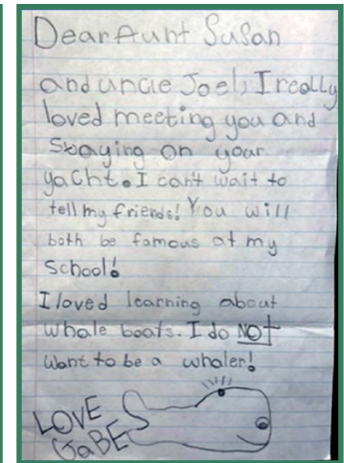 Dear Aunt Susan
and uncle Joel, I really
loved meeting you and
staying on your
yacht. I can't wait to
tell my friends! You will
both be famous at my
school!
I loved learning about
whale boats. I do NOT
want to be a whaler!
LOVE
GABE